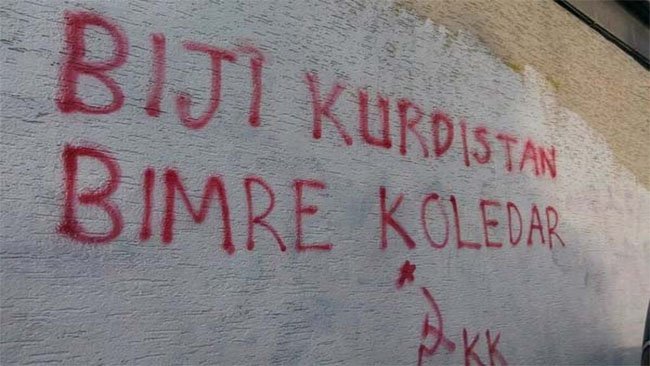 BIJÎ KURDISTAN
BIMRE KOLEDAR
PKK